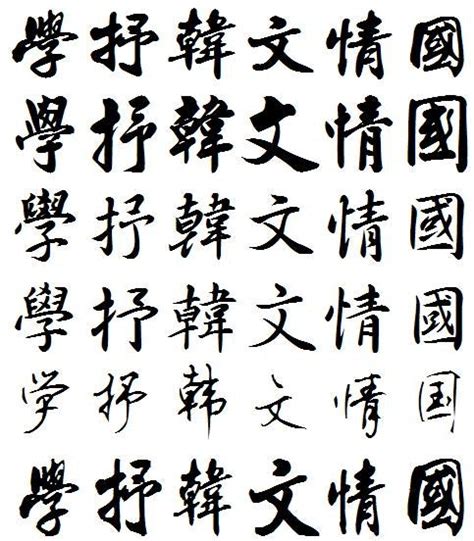 學抒韓文情國
學抒韓文情國
學抒韓文情國
學抒韓文情國
学抒韩文情国
學抒韓文情國